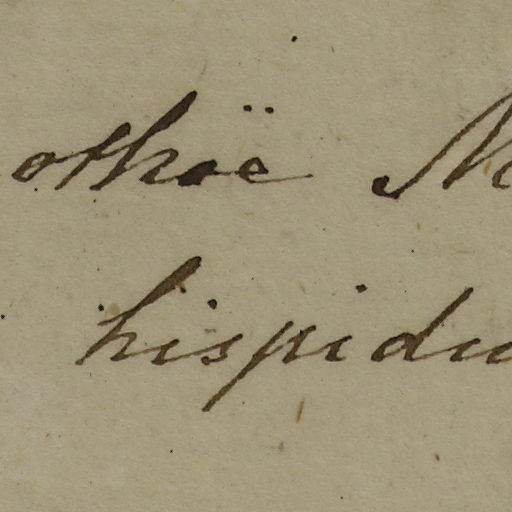 othoë
hispidu